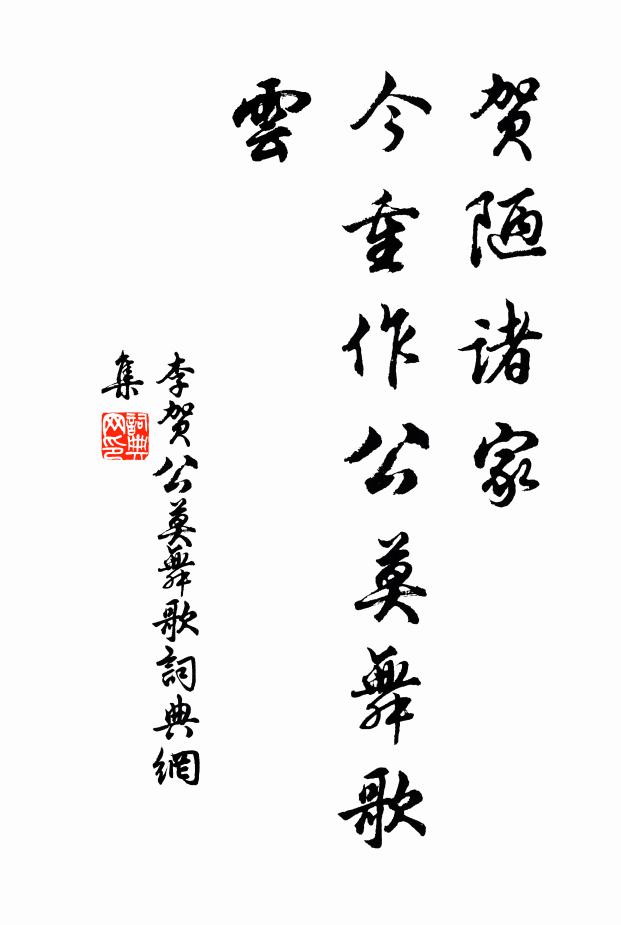 贺陋諸家
今重作公莫舞歌
雲
李贺公莫舞歌詞典網
集
詞典
网印